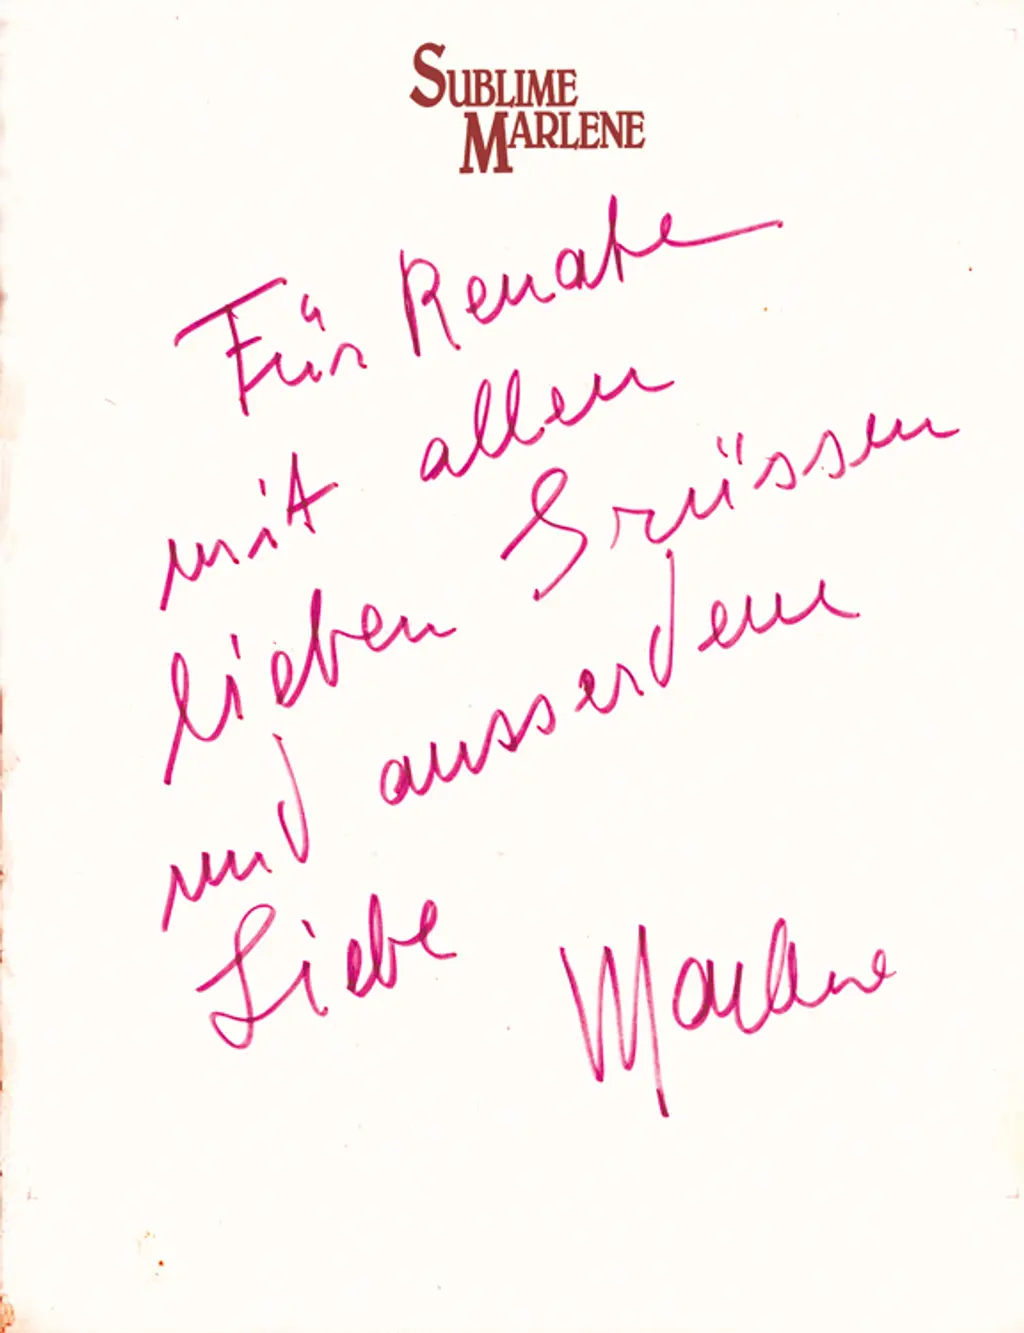 SUBLIME
MARLENE
Für Renate
mit allen
lieben Grüssen
und ausserdem
Liebe
Marlene